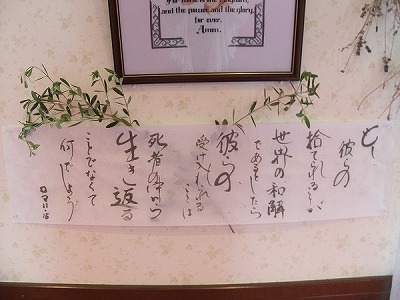 For thine is the kingdom,
and the power and the glory,
for ever.
Amen.
もし
彼らの
捨てられることが
世界の和解
であるとしたら
彼らの
受け入れられる
ことは
死者の中から
生き返る
ことでなくて
何でしょう